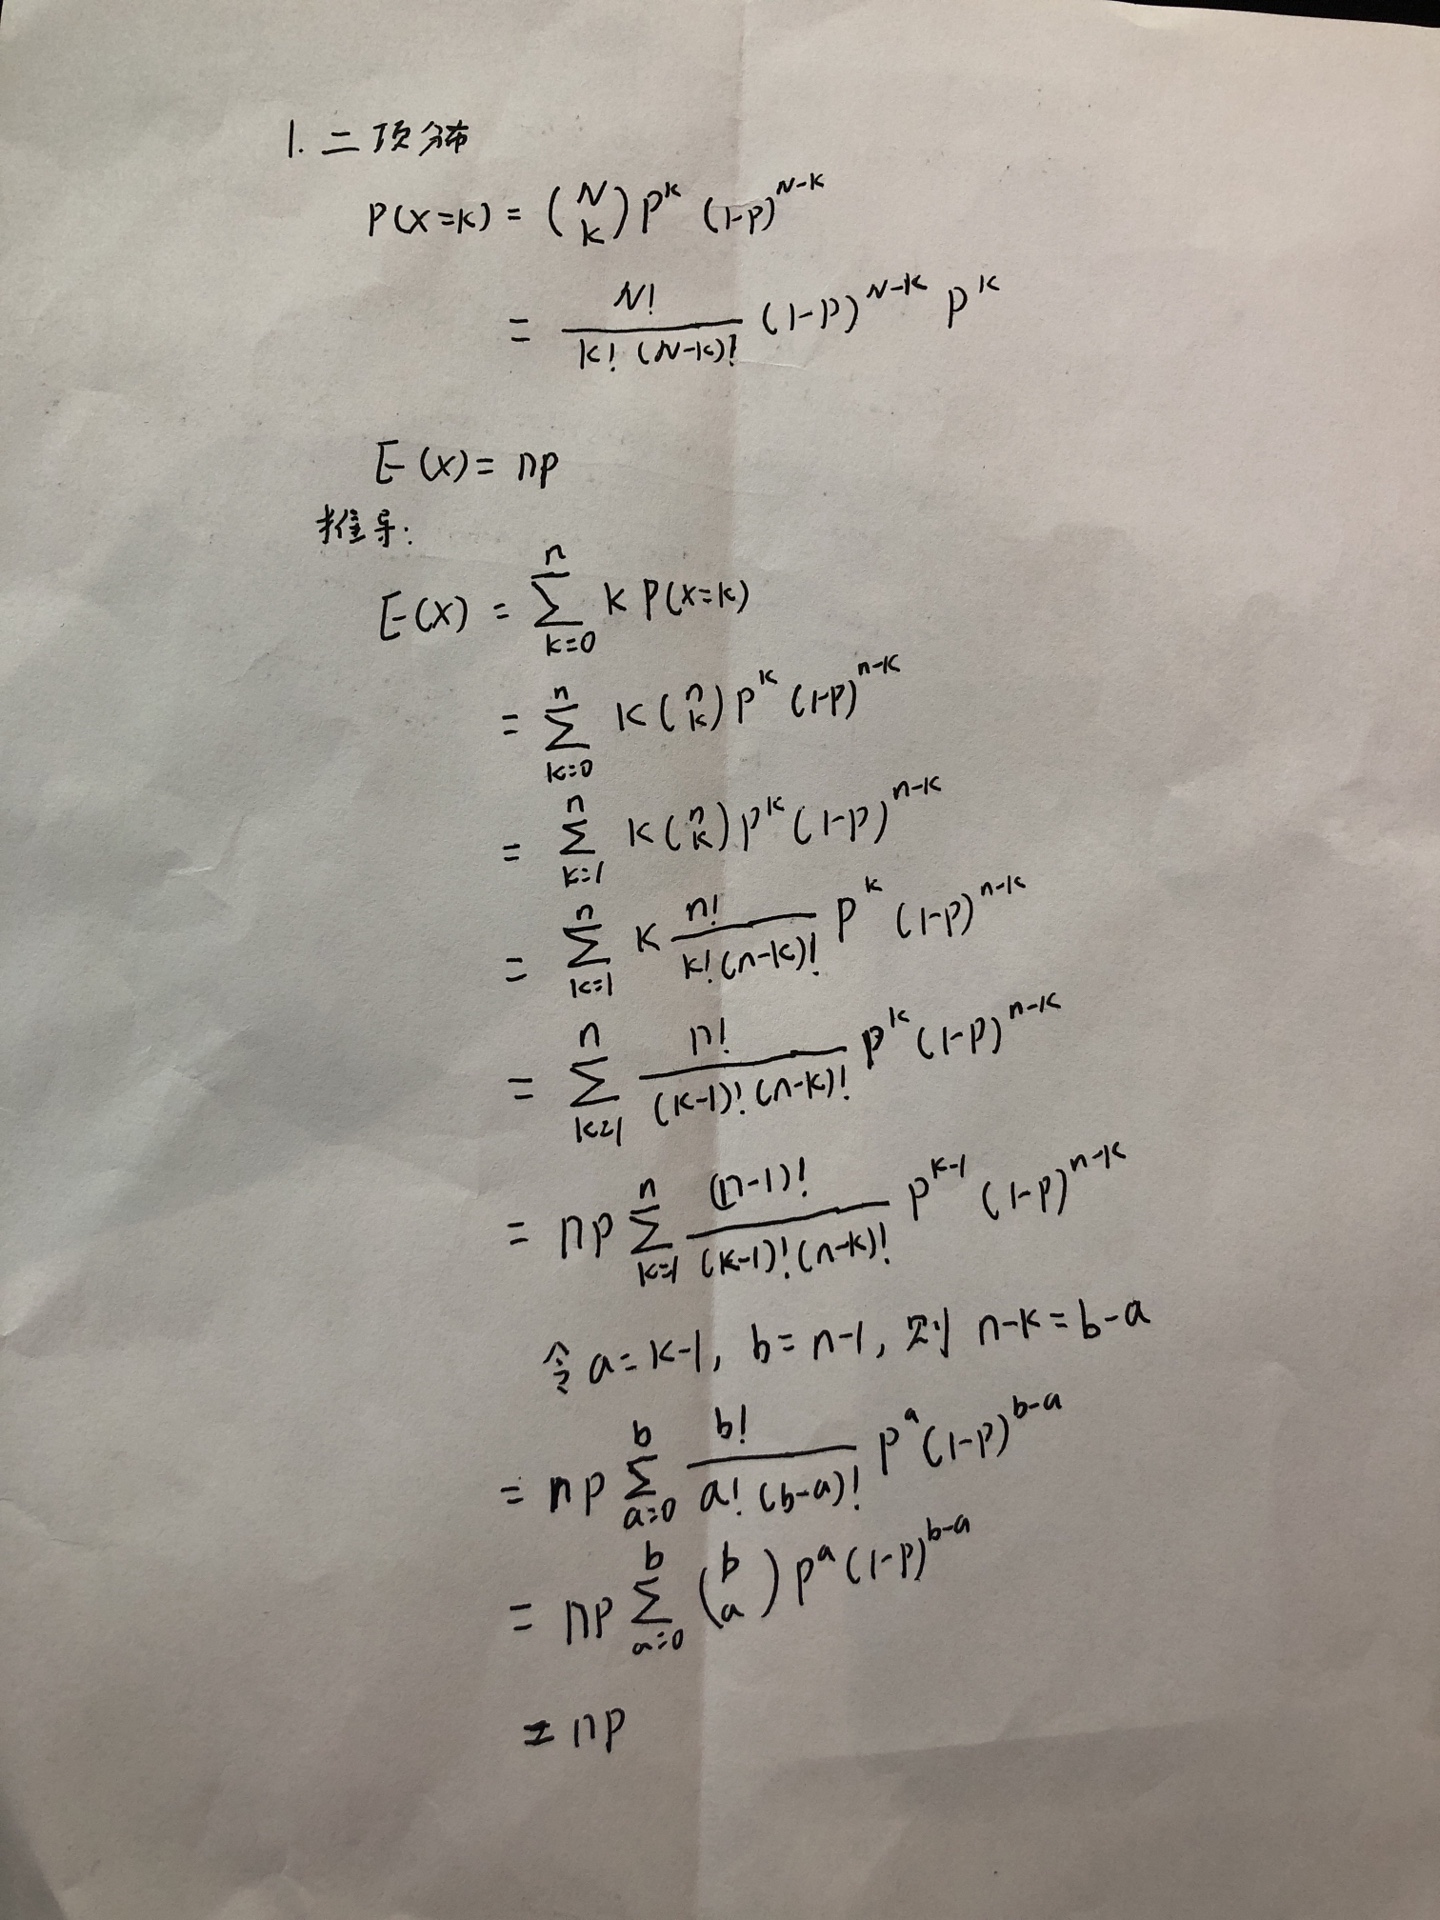 1. 二项分布
P(X=k) = \binom{N}{k} p^k (1-p)^{N-k}
= \frac{N!}{k! (N-k)!} (1-p)^{N-k} p^k
E(X) = np
推导:
E(X) = \sum_{k=0}^{n} k P(X=k)
= \sum_{k=0}^{n} k \binom{n}{k} p^k (1-p)^{n-k}
= \sum_{k=1}^{n} k \binom{n}{k} p^k (1-p)^{n-k}
= \sum_{k=1}^{n} k \frac{n!}{k! (n-k)!} p^k (1-p)^{n-k}
= \sum_{k=1}^{n} \frac{n!}{(k-1)! (n-k)!} p^k (1-p)^{n-k}
= np \sum_{k=1}^{n} \frac{(n-1)!}{(k-1)! (n-k)!} p^{k-1} (1-p)^{n-k}
令 a=k-1, b=n-1, 则 n-k=b-a
= np \sum_{a=0}^{b} \frac{b!}{a! (b-a)!} p^a (1-p)^{b-a}
= np \sum_{a=0}^{b} \binom{b}{a} p^a (1-p)^{b-a}
= np